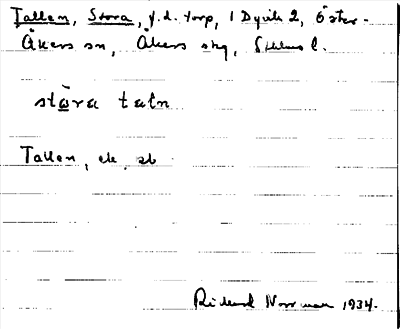 Tallen, Stora, f.d. torp, 1 Dyvik 2, Öster-
Åkers sn, Åkers skg, Sthlms l.
stɷ̀ra taln
Tallen, ek. bl.
Rickard Norrman 1934.